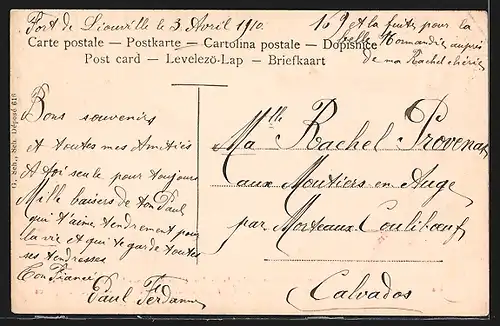 Fort de Liouville le 3 Avril 1910.
169 et la fuite pour la
belle Normandie auprès
de ma Rachel chérie
Carte postale — Postkarte — Cartolina postale — Dopisnice
Post card — Levelező-Lap — Briefkaart
G. Sch., Sch. Déposé 616
Bons souvenirs
et toutes mes Amitiés
A toi seule pour toujours
Mille baisers de ton Paul
qui t'aime tendrement pour
la vie et qui te garde toutes
ses tendresses
Ton Fiancé
Paul
Mlle Rachel Provenat
aux Moutiers en Auge
par Morteaux Couliboeuf
Calvados